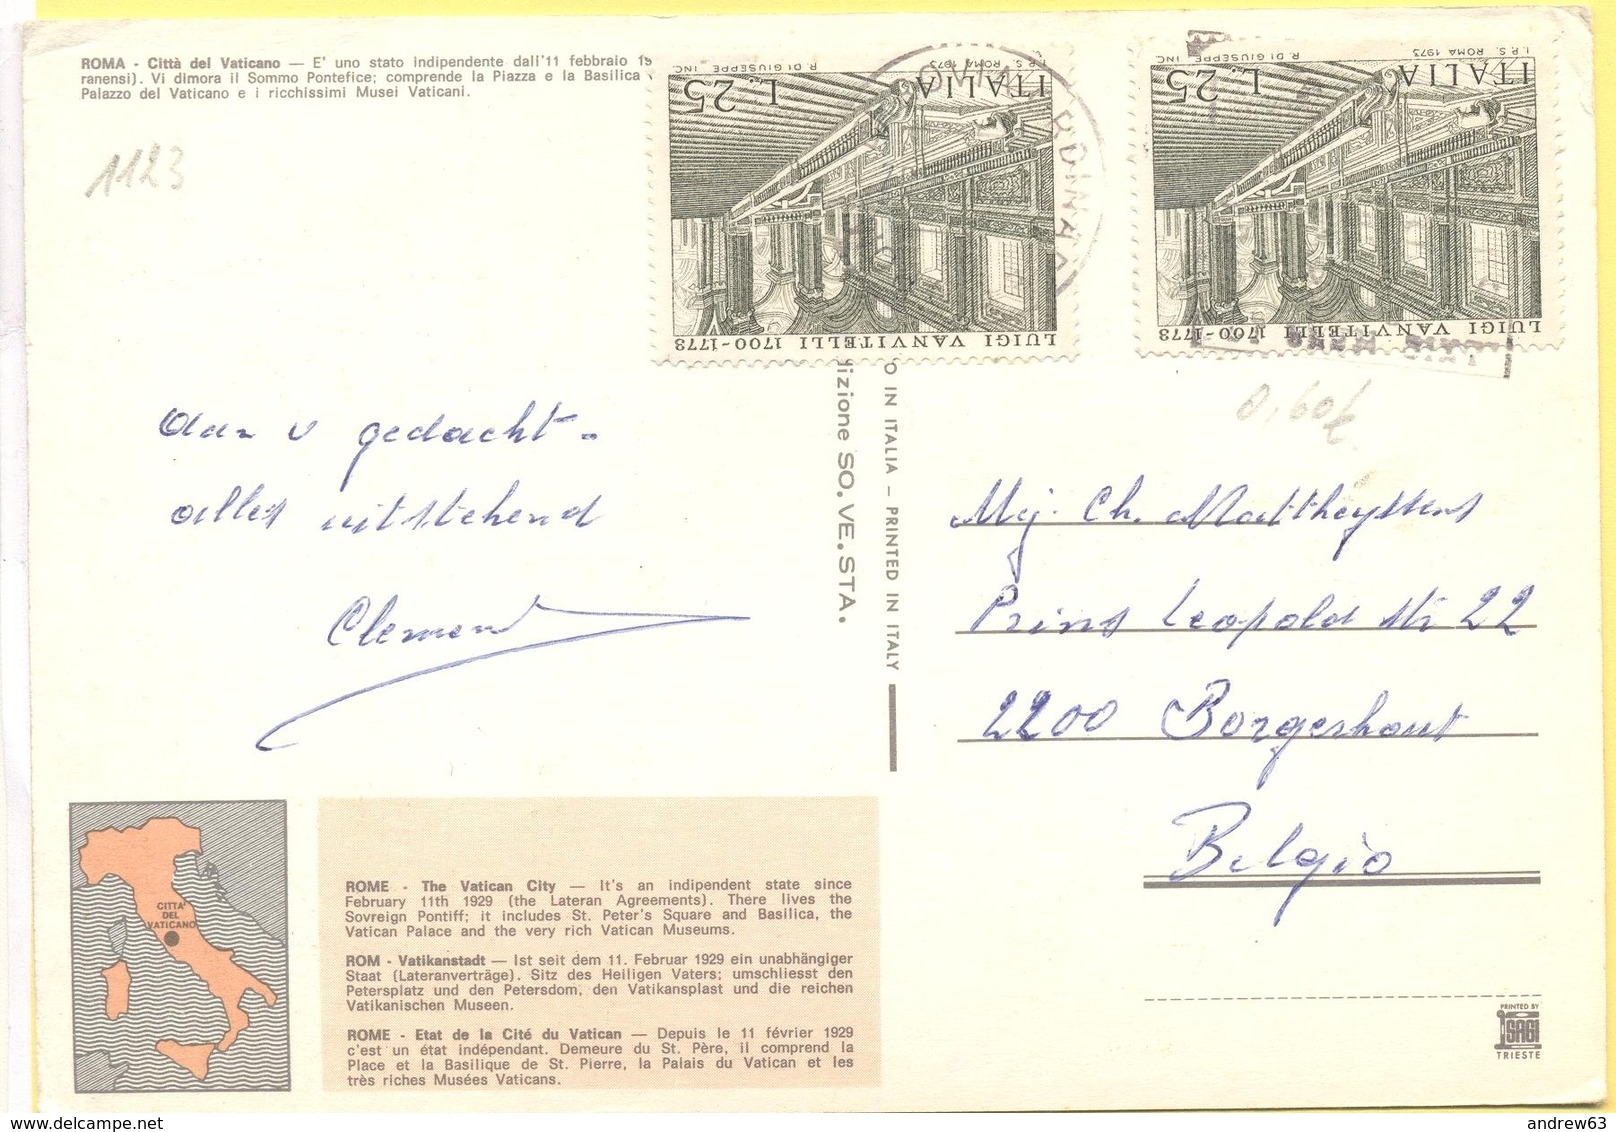 ROMA - Città del Vaticano — E' uno stato indipendente dall'11 febbraio 19
ranensi). Vi dimora il Sommo Pontefice; comprende la Piazza e la Basilica
Palazzo del Vaticano e i ricchissimi Musei Vaticani.
1123
I.P.S. ROMA 1973 R. DI GIUSEPPE INC.
ITALIA L. 25
LUIGI VANVITELLI 1700-1773
I.P.S. ROMA 1973 R. DI GIUSEPPE INC.
ITALIA L. 25
LUIGI VANVITELLI 1700-1773
0,60€
aan u gedacht.
alles uitstekend
Clement
dizione SO.VE.STA.
O IN ITALIA – PRINTED IN ITALY
Mej. Ch. Mattheyssens
Prins Leopold str 22
2200 Borgerhout
Belgio
CITTA'
DEL
VATICANO
ROME - The Vatican City — It's an indipendent state since
February 11th 1929 (the Lateran Agreements). There lives the
Sovreign Pontiff; it includes St. Peter's Square and Basilica, the
Vatican Palace and the very rich Vatican Museums.
ROM - Vatikanstadt — Ist seit dem 11. Februar 1929 ein unabhängiger
Staat (Lateranverträge). Sitz des Heiligen Vaters; umschliesst den
Petersplatz und den Petersdom, den Vatikansplast und die reichen
Vatikanischen Museen.
ROME - Etat de la Cité du Vatican — Depuis le 11 février 1929
c'est un état indépendant. Demeure du St. Père, il comprend la
Place et la Basilique de St. Pierre, la Palais du Vatican et les
très riches Musées Vaticans.
PRINTED BY
SAGI
TRIESTE
andrew63